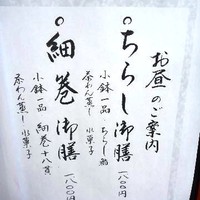 お昼のご案内
ちらし御膳
一八〇〇円
小鉢一品 ちらし鮨
茶わん蒸し 水菓子
細巻御膳
一八〇〇円
小鉢一品 細巻十八貫
茶わん蒸し 水菓子